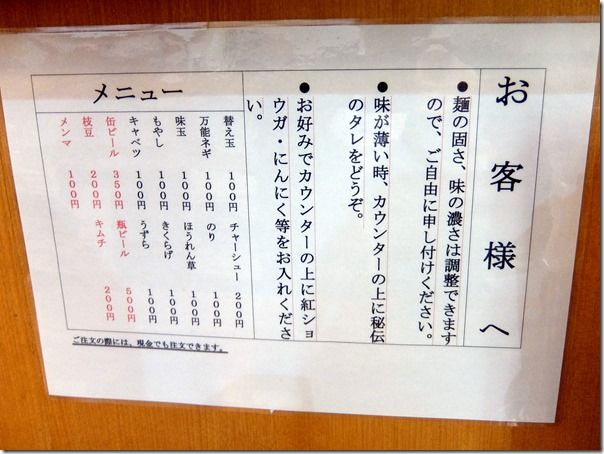 お客様へ
●麺の固さ、味の濃さは調整できます
ので、ご自由に申し付けください。
●味が薄い時、カウンターの上に秘伝
のタレをどうぞ。
●お好みでカウンターの上に紅ショ
ウガ・にんにく等をお入れくださ
い。
メニュー
替え玉 100円 チャーシュー 200円
万能ネギ 100円 のり 100円
味玉 100円 ほうれん草 100円
もやし 100円 きくらげ 100円
キャベツ 100円 うずら 100円
缶ビール 350円 瓶ビール 500円
枝豆 200円 キムチ 200円
メンマ 100円
ご注文の際には、現金でも注文できます。